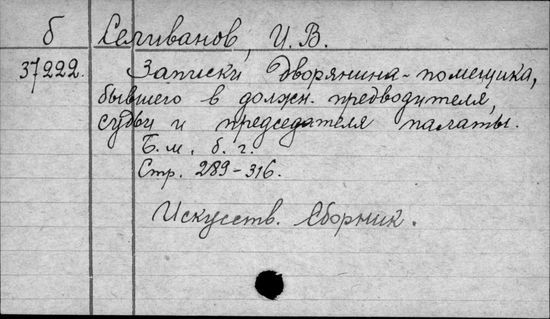 б Селиванов, И. В.
37222. Записки дворянина-помещика,
бывшего в должн. предводителя,
судьи и председателя палаты.
Б. м., б. г.
Стр. 289-316.
Искусств. Сборник.